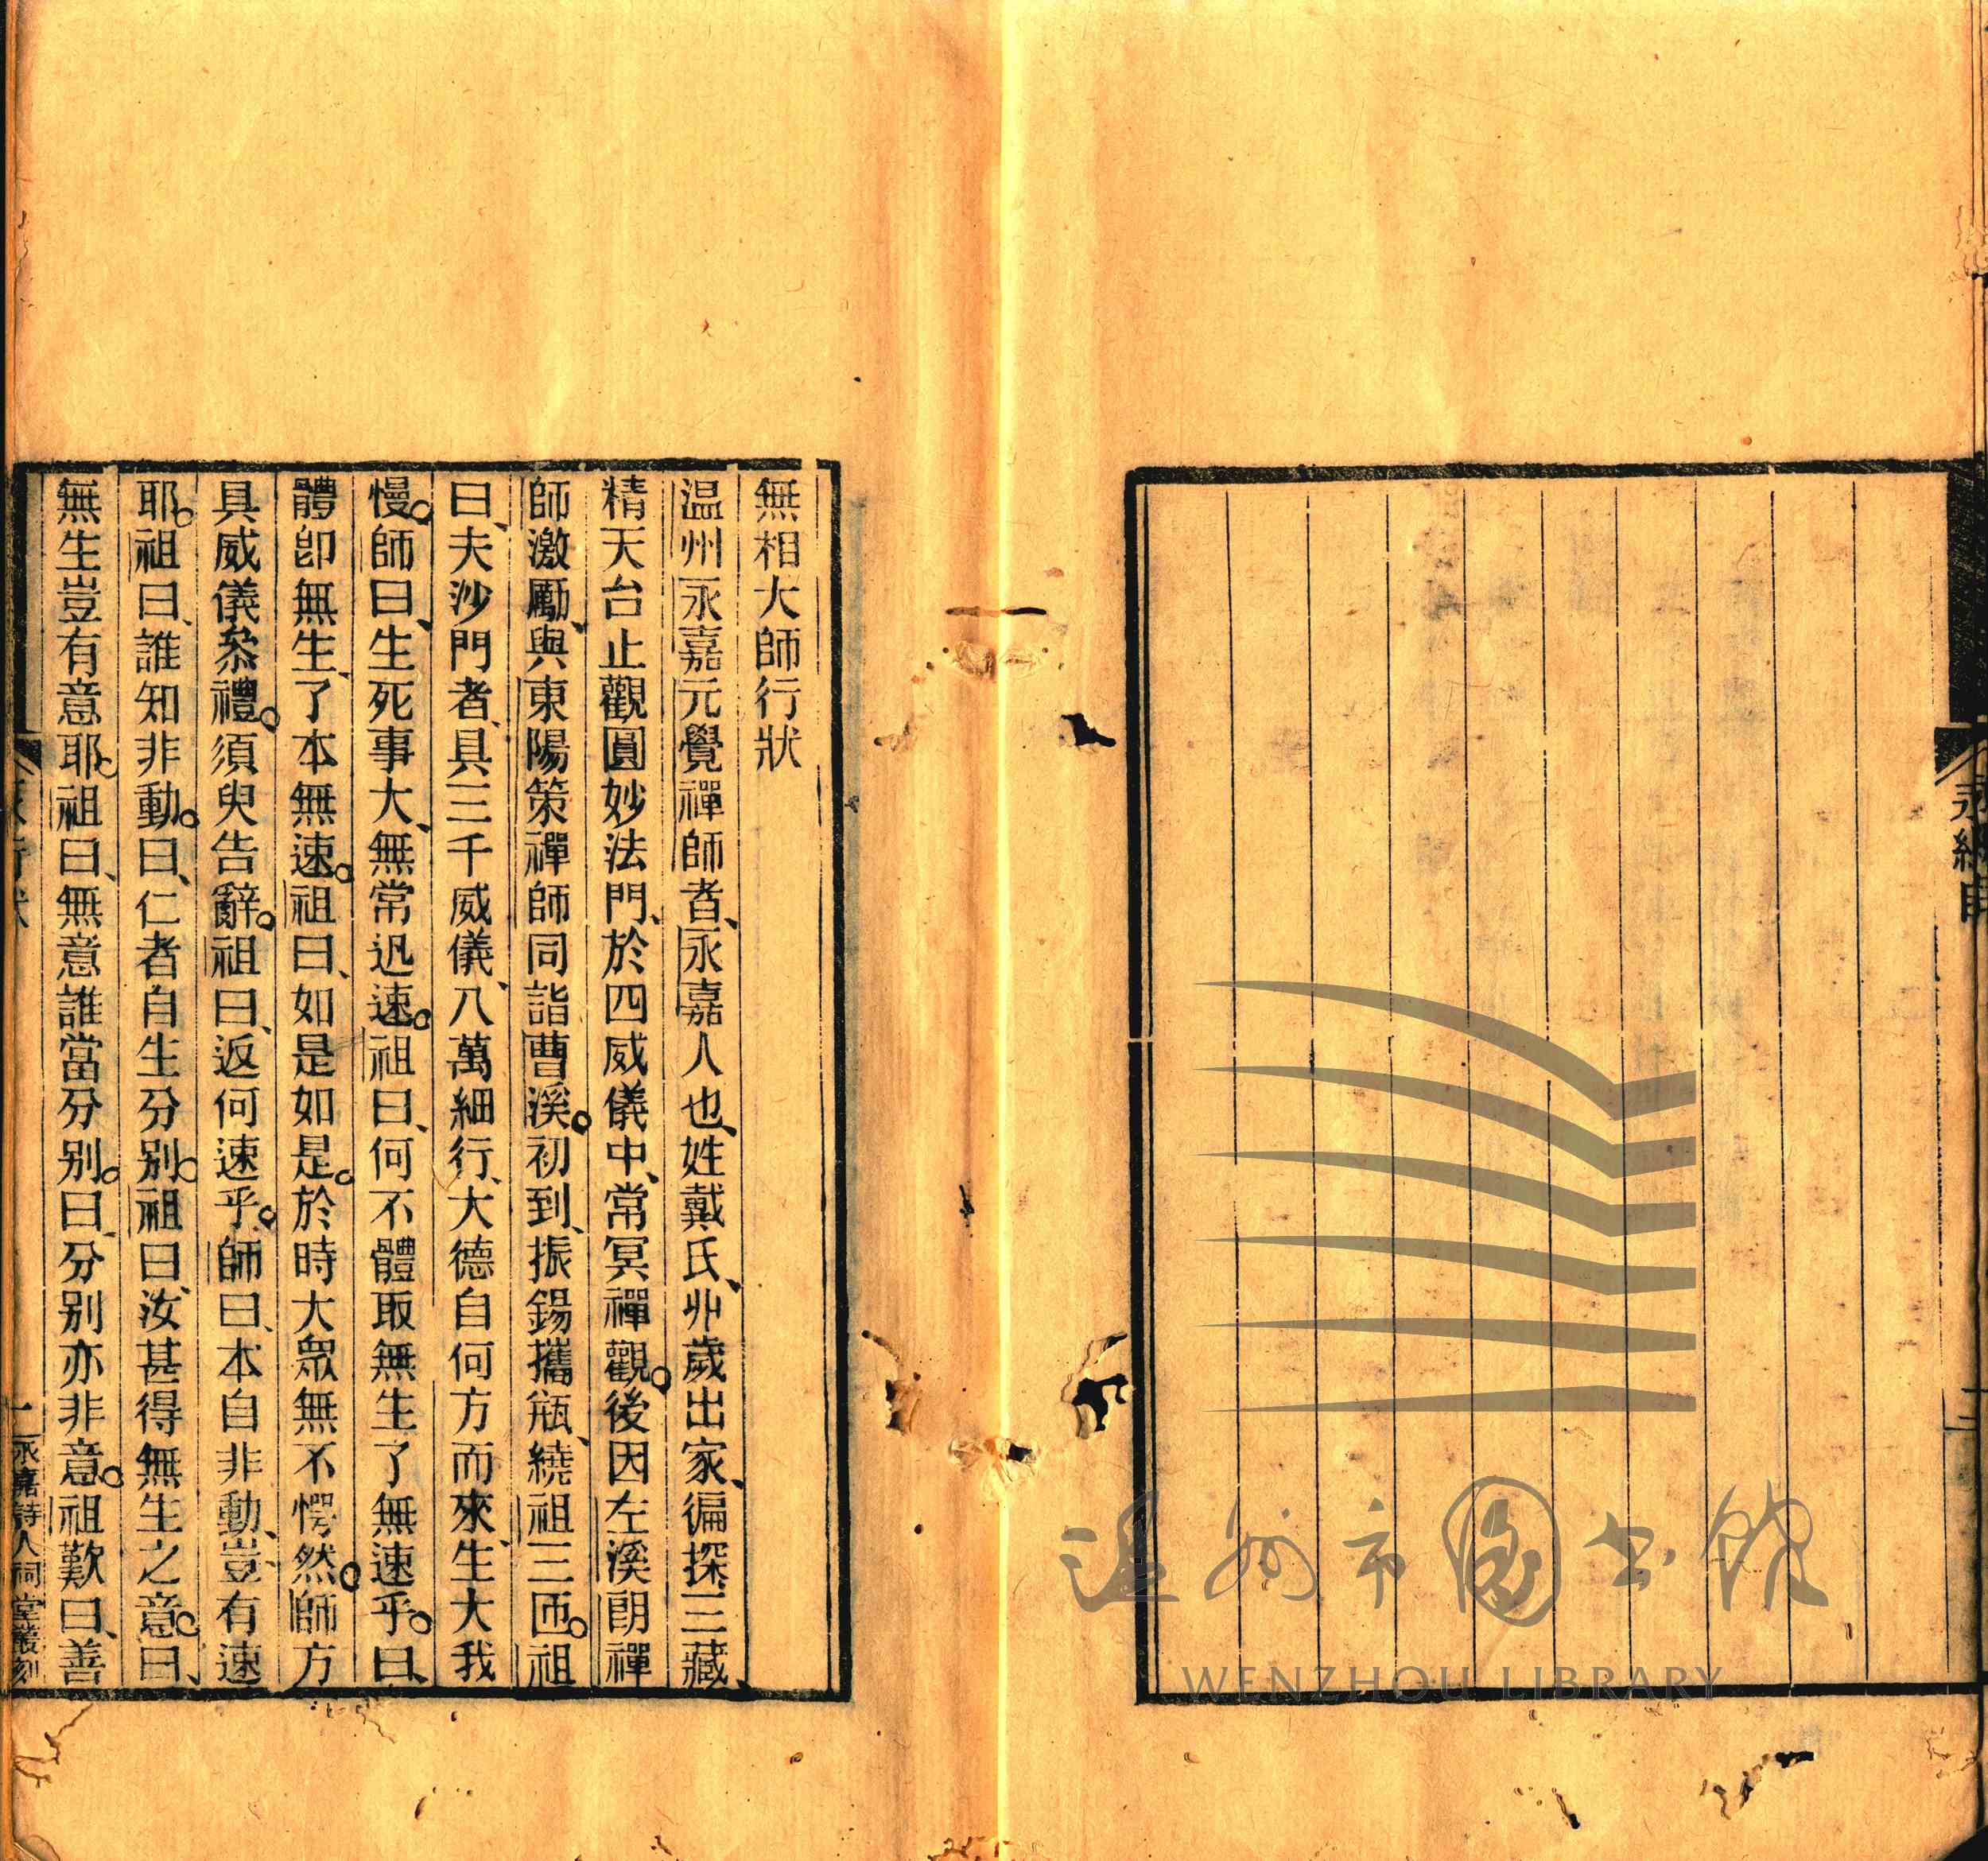 永集目
二
無相大師行狀
温州永嘉元覺禪師者、永嘉人也、姓戴氏、丱歲出家、徧探三藏、
精天台止觀圓妙法門、於四威儀中、常冥禪觀。後因左溪朗禪
師激勵、與東陽策禪師同詣曹溪。初到、振錫攜瓶、繞祖三匝。祖
曰、夫沙門者、具三千威儀、八萬細行、大德自何方而來、生大我
慢。師曰、生死事大、無常迅速。祖曰、何不體取無生了無速乎。曰、
體卽無生、了本無速。祖曰、如是如是。於時大衆無不愕然。師方
具威儀叅禮。須臾告辭。祖曰、返何速乎。師曰、本自非動、豈有速
耶。祖曰、誰知非動。曰、仁者自生分別。祖曰、汝甚得無生之意。曰、
無生豈有意耶。祖曰、無意誰當分別。曰、分別亦非意。祖歎曰、善
永行狀
一
永嘉詩人祠堂叢刻
温州市图书馆
WENZHOU LIBRARY